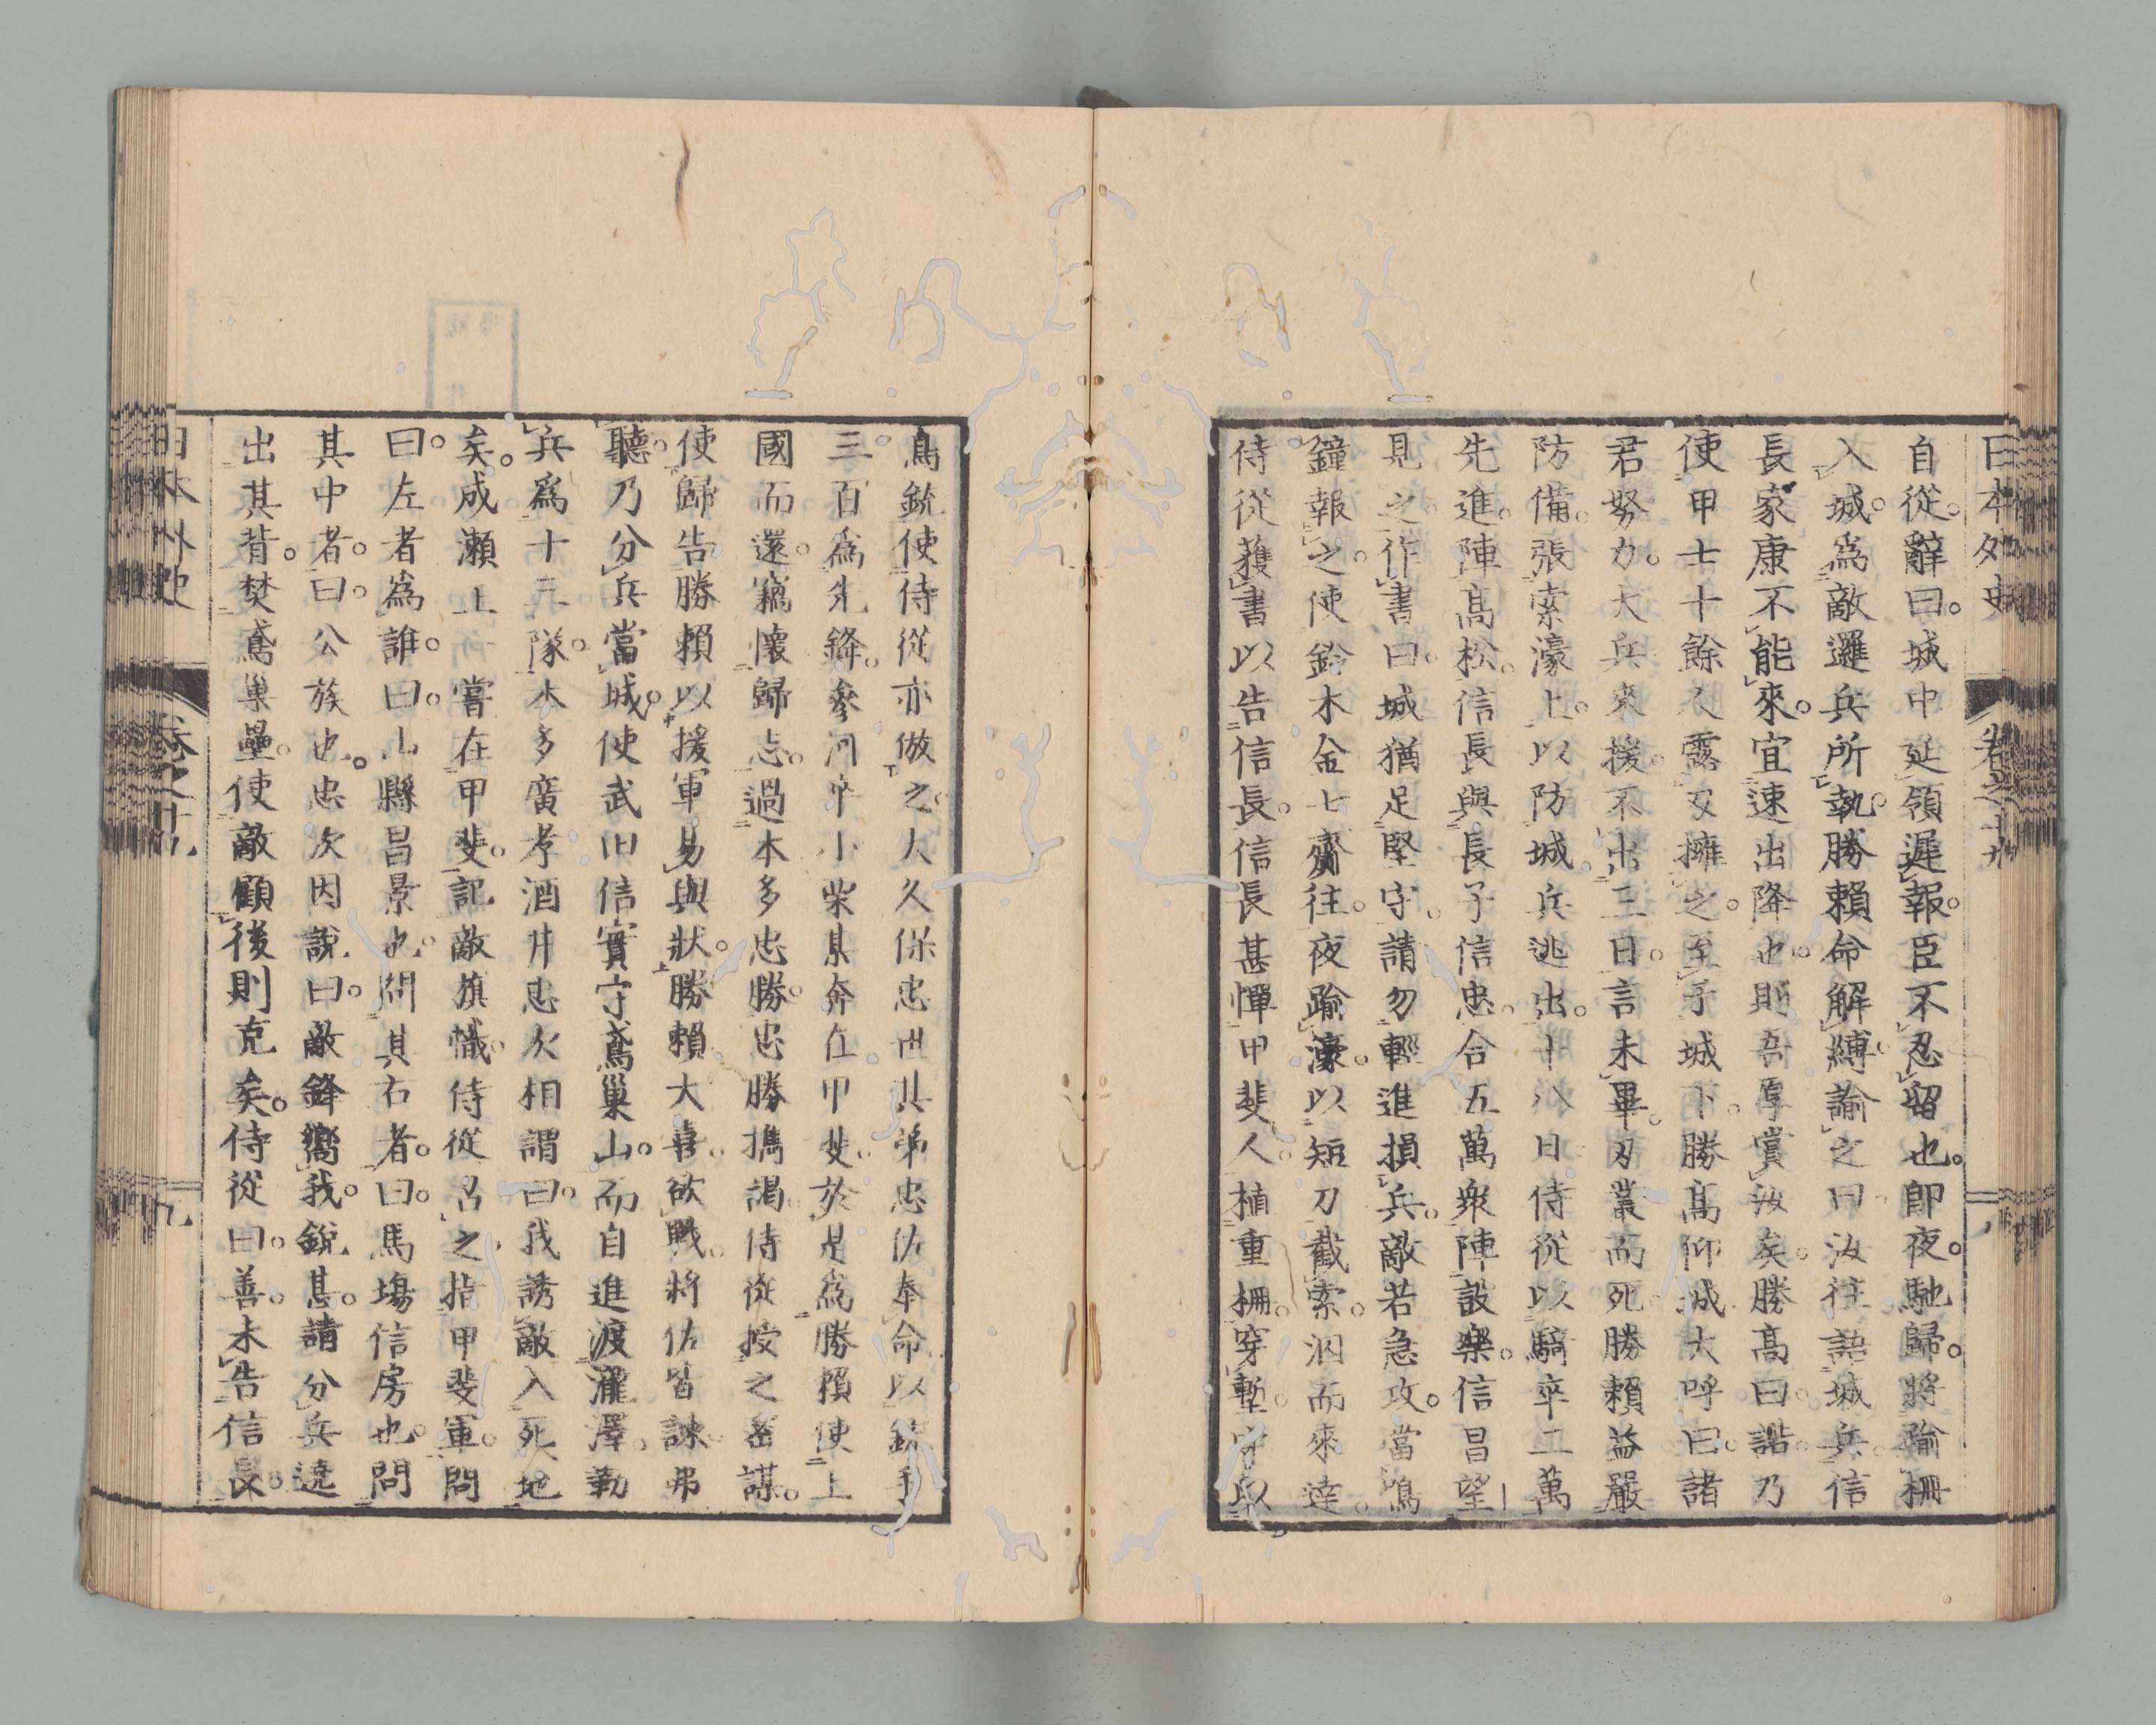 日本外史
卷之十九
自從。辭曰。城中延領遲報。臣不忍留也。即夜。馳歸。將踰柵
入城。爲敵邏兵所執。勝賴命解縛。諭之曰。汝往語城兵。信
長家康不能來。宜速出降也。則吾厚賞汝矣。勝高曰。諾。乃
使甲士十餘人露刃擁之。至于城下。勝高仰城大呼曰。諸
君努力。大兵來援。不出三日。言未畢。刃叢而死。勝賴益嚴
防備。張索濠上。以防城兵逃出。十八日侍從以騎卒二萬
先進。陣高松。信長與長子信忠。合五萬衆。陣設樂。信昌望
見之。作書曰。城猶足堅守。請勿輕進損兵。敵若急攻。當鳴
鐘報之。使鈴木金七齎往。夜踰濠。以短刀截索。泅而來達。
侍從獲書以告信長。信長甚憚甲斐人。植重柵。穿塹守以
鳥銃使侍從亦倣之。大久保忠世其弟忠佐奉命。以銃手
三百爲先鋒。參河卒小柴某奔在甲斐。於是爲勝賴使上
國而還。竊懷歸志。過本多忠勝。忠勝攜謁侍從。按之密謀。
使歸告勝賴以援軍易與狀。勝賴大喜。欲戰。將佐皆諫弗
聽。乃分兵當城。使武田信實守鳶巢山。而自進渡瀧澤。勒
兵爲十三隊。本多廣孝酒井忠次相謂曰。我誘敵入死地
矣。成瀨正所嘗在甲斐。記敵旗幟。侍從召之。指甲斐軍。問
曰。左者爲誰。曰。山縣昌景也。問其右者。曰。馬場信房也。問
其中者。曰。公族也。忠次因說曰。敵鋒嚮我。銳甚。請分兵遶
出其背。焚鳶巢壘。使敵顧後則克矣。侍從曰。善。未告信長。
日本外史
卷之十九
九